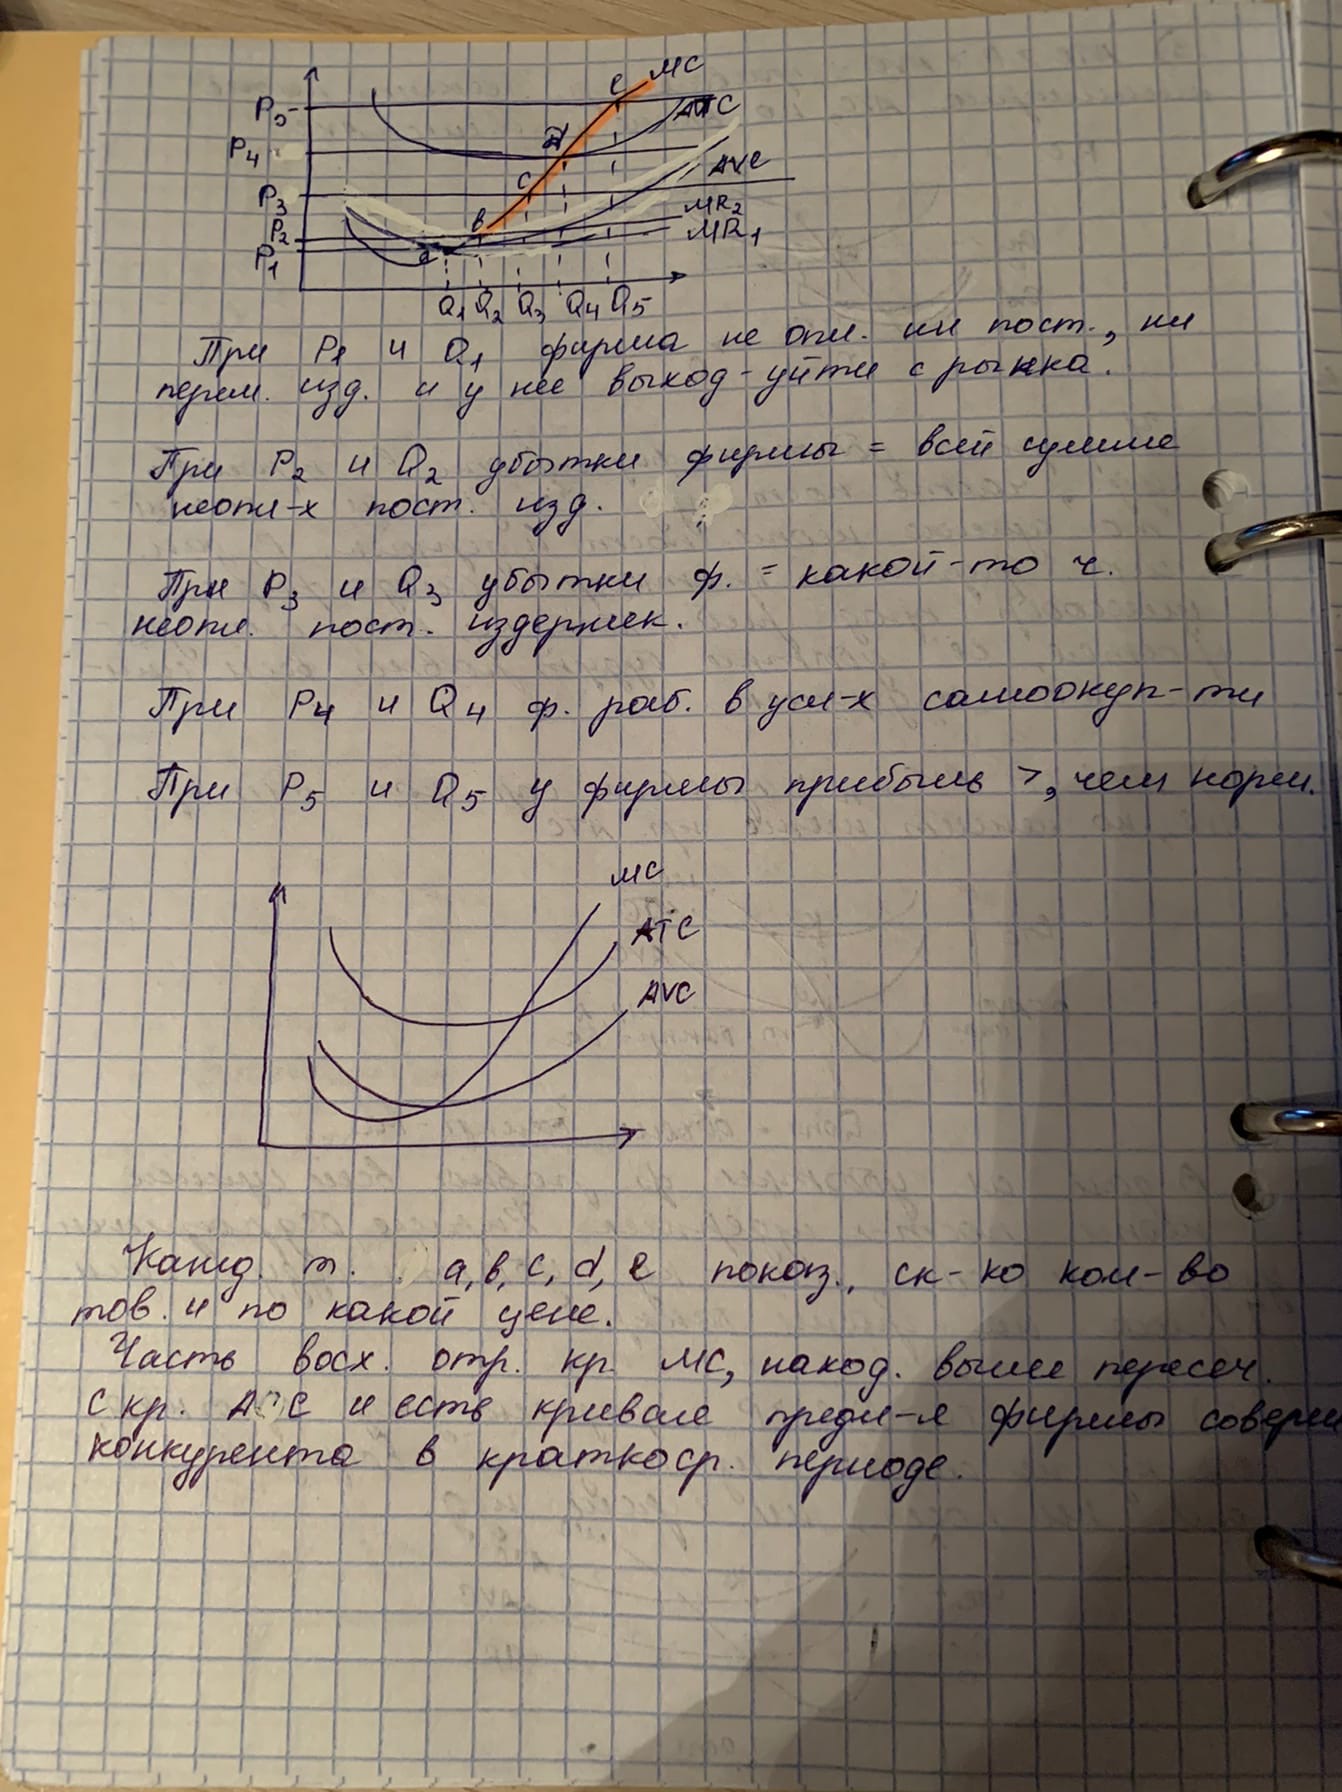 MC
e
P5
ATC
P4
d
AVC
c
P3
MR2
в
P2
MR1
P1
a
Q1 Q2 Q3 Q4 Q5
При P1 и Q1 фирма не опл. ни пост., ни
перем. изд. и у нее выход-уйти с рынка.
При P2 и Q2 убытки фирмы = всей сумме
неопл-х пост. изд.
При P3 и Q3 убытки ф. = какой-то ч.
неопл. пост. издержек.
При P4 и Q4 ф. раб. в усл-х самоокуп-ти
При P5 и Q5 у фирмы прибыль >, чем норм.
MC
ATC
AVC
Кажд. т. a, в, c, d, e показ., ск-ко кол-во
тов. и по какой цене.
Часть восх. отр. кр. MC, наход. выше пересеч.
с кр. и есть кривае предл-я фирмы соверш
конкурента в краткоср. периоде.